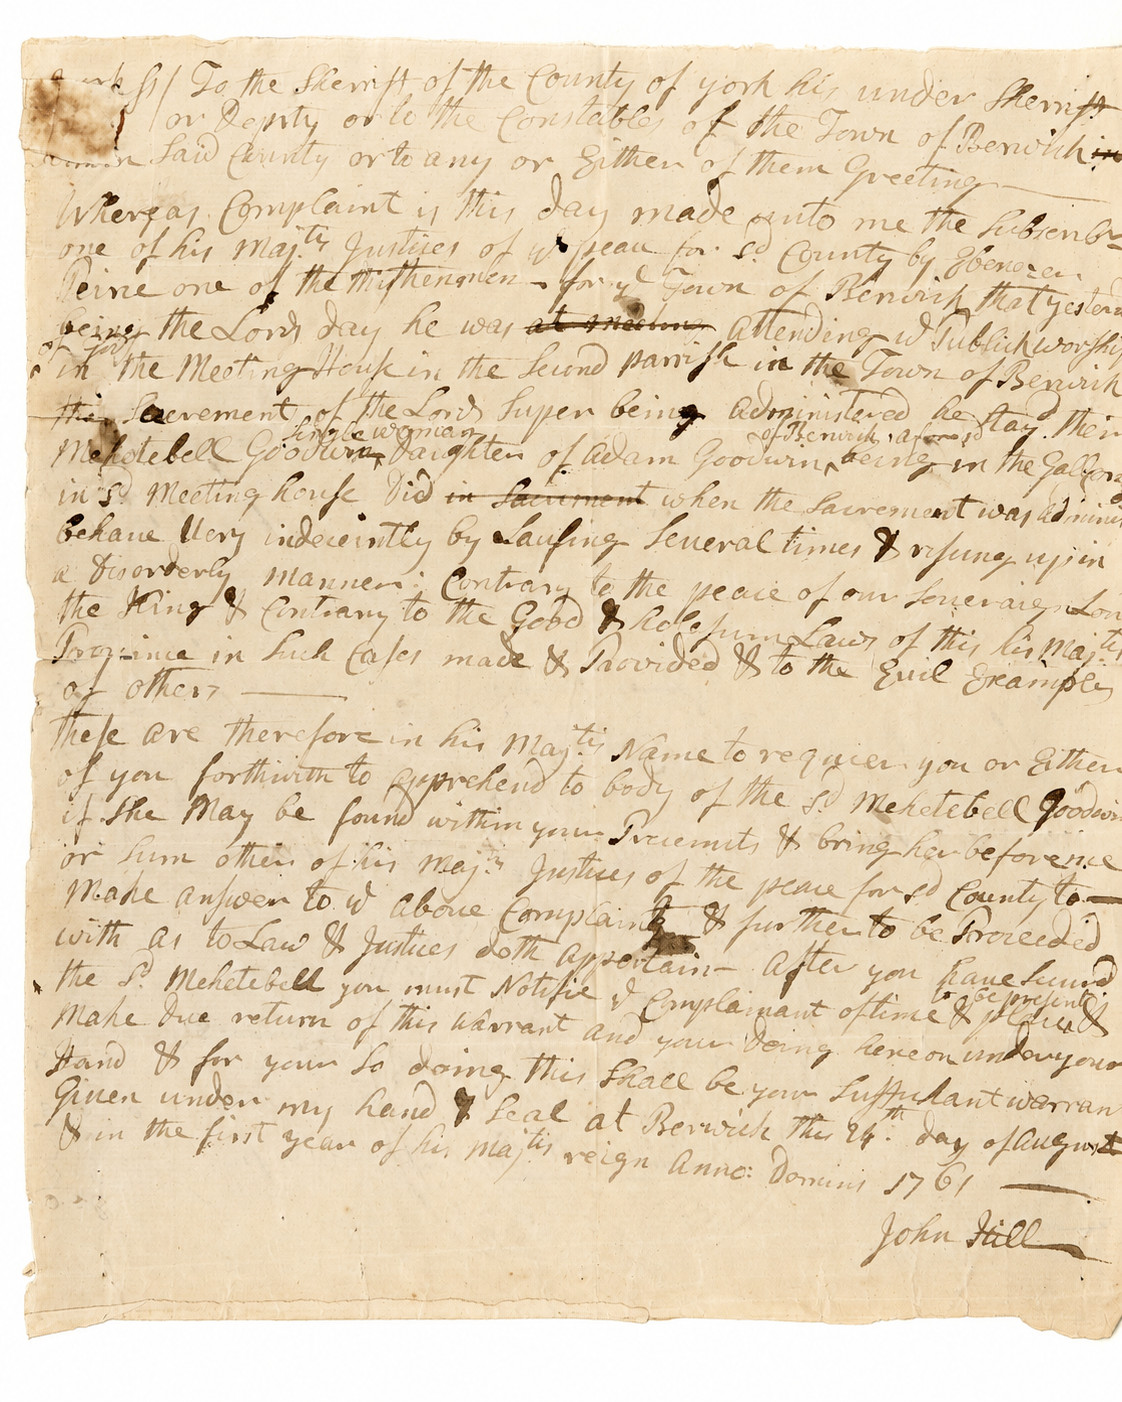 York ss/ To the Sherrift of the County of york his under Sherrift
or Deputy or to the Constables of the Town of Berwick in
Said County or to any or Either of them Greeting
Whereas Complaint is this day made unto me the Subscribr
one of his Maj:tys Justices of ye peace for sd County by Ebenezer
one of the tithengmen for ye Town of Berwick that yesterd
being the Lords day he was at meeting attending ye Publick worship
of God
in the Meeting House in the Second parrish in the Town of Berwick
the Sacrement of the Lords Super being administered he stayd then
Single woman of Berwick aforesd
Mehetebell Goodwin Daughter of Adam Goodwin being in the Gallory
in sd Meeting house Did in Sacrement when the Sacrement was Adminis
behave Very indeciently by Laufing Several times & rising up in
a Disorderly manner: Contrary to the peace of our Soveraign Lor
the King & Contrary to the Good & holesum Laws of this his Maj:ts
Province in Such Cases made & Provided & to the Evil Examples
of others
these are therefore in his Maj:tis Name to requier you or Either
of you forthwith to apprehend to body of the sd Mehetebell Goodwin
if She May be found within your Precincts & bring her before me
or Sum other of his Maj:ts Justices of the peace for sd County to
Make answer to ye above Complaint & further to be Proceeded
with as to Law & Justices doth appertain After you have Secured
the Sd Mehetebell you must Notifie ye Complainant of time & place
to be present &
Make Due return of this Warrant and your doing hereon under your
Hand & for your So doing this Shall be your Suffichant warran
Given under my hand & Seal at Berwick this 24th day of August
& in the first year of his Majtis reign Anno: Domini 1761
John Hill